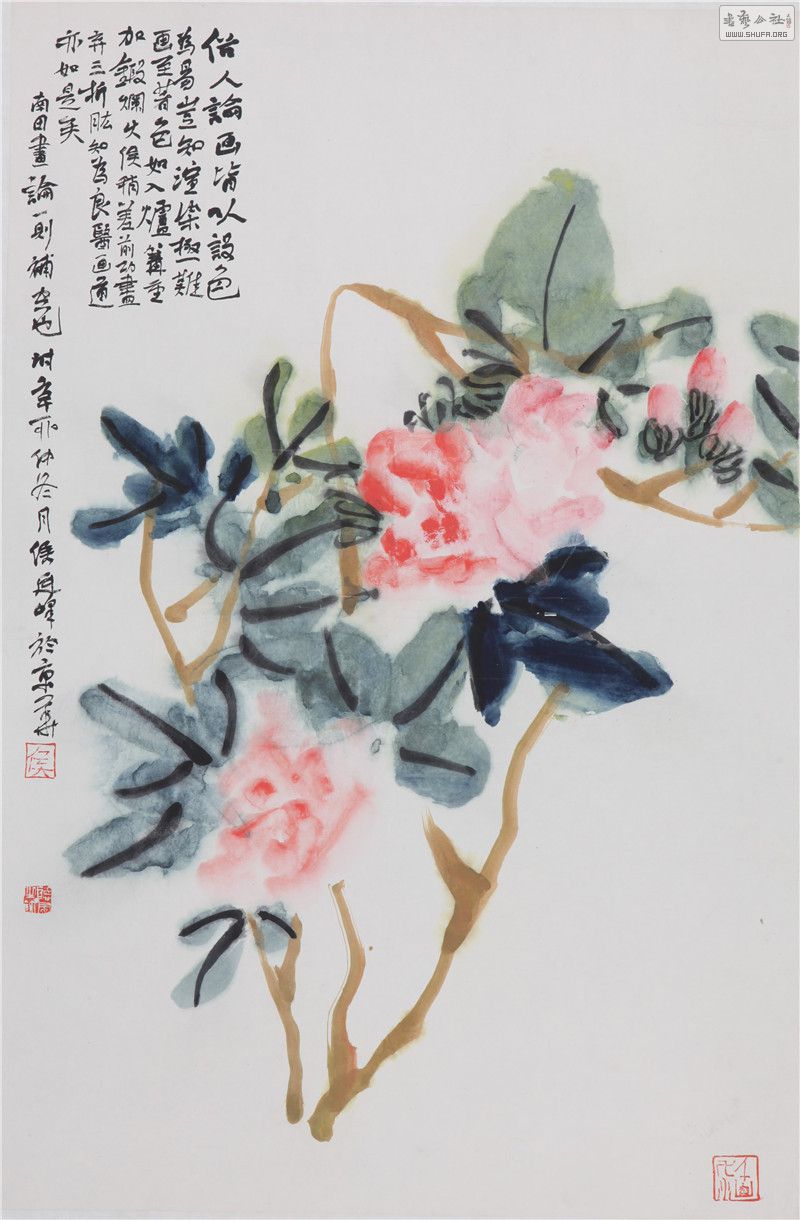 書藝公社
www.SHUFA.ORG
俗人論画皆以設色
為易豈知渲染極難
画至著色如入爐篝重
加鍛爛火候稍差前功盡
弃三折肱知為良醫画道
亦如是矣
南田畫論一則補空也时辛卯仲冬月侯廷峰於京華
侯